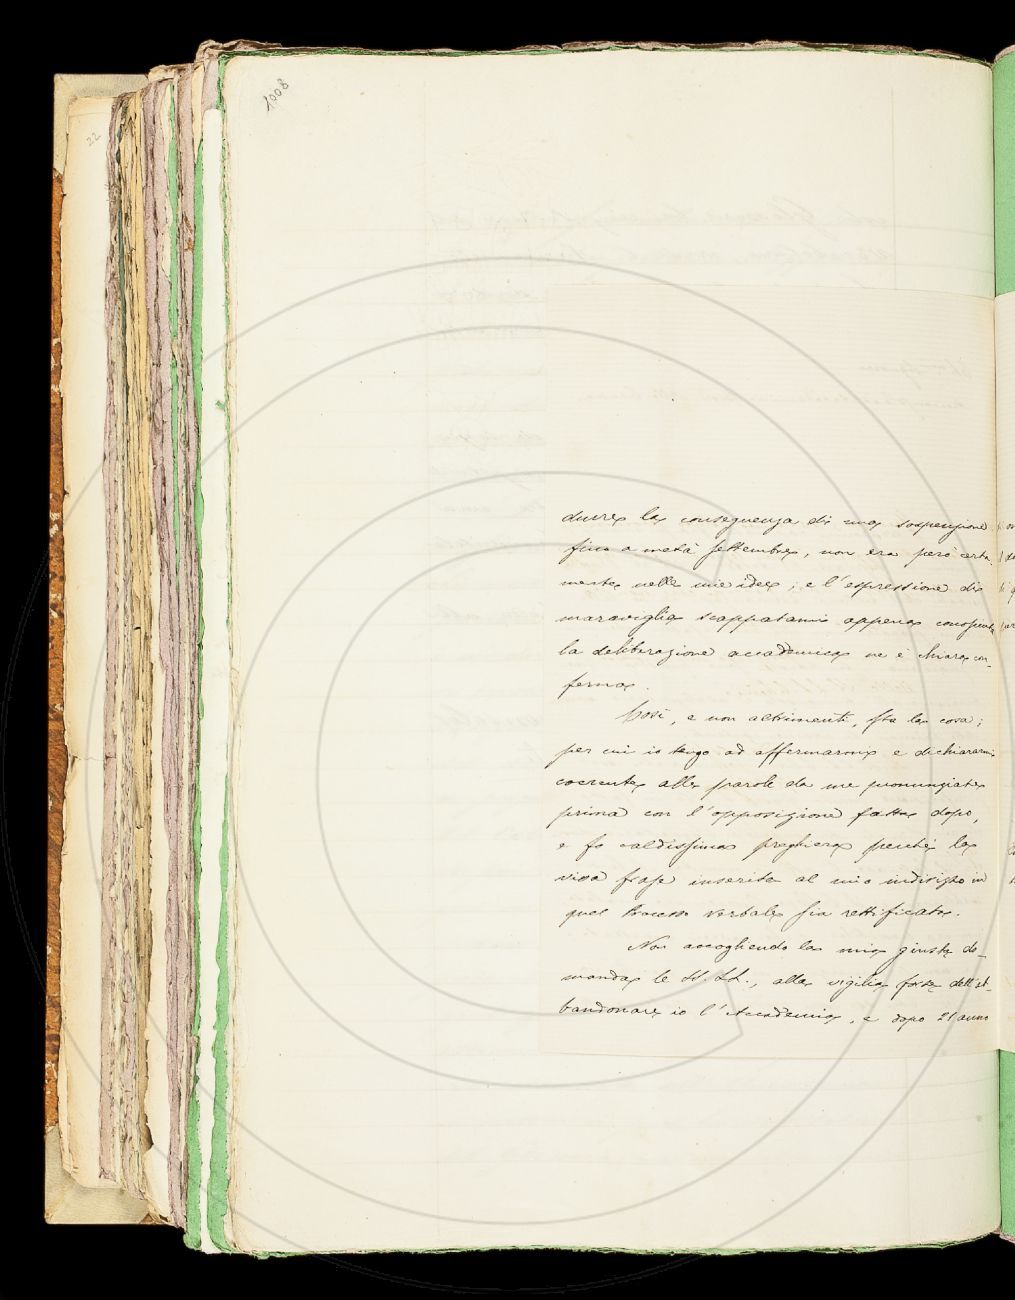 1008
22
durre la conseguenza di una sospensione
fino a metà settembre, non era però certa-
mente nelle mie idee; e l'espressione di
maraviglia scappatami appena conosciuta
la deliberazione accademica ne è chiara con-
ferma.
Così, e non altrimenti, sta la cosa;
per cui io tengo ad affermarmi e dichiararmi
coerente alle parole da me pronunziate
prima con l'opposizione fatta dopo,
e fo caldissima preghiera perchè la
frase inserita al mio indirizzo in
quel Processo verbale sia rettificata.
Non accogliendo la mia giusta do-
manda le LL. LL., alla vigilia forse dell'ab-
bandonare io l'Accademia, e dopo 21 anno